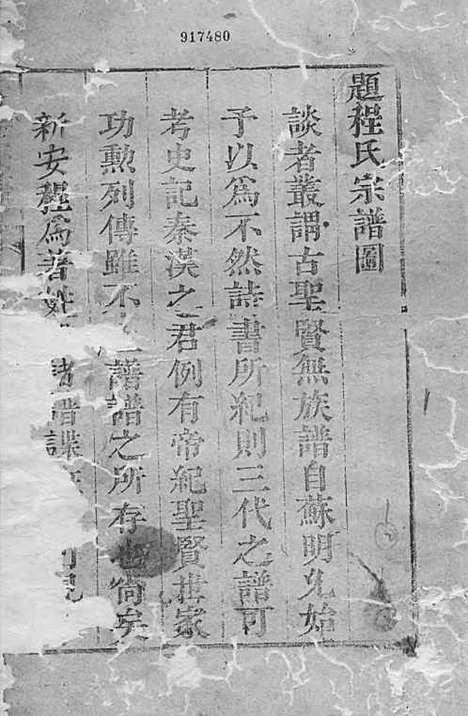 917480
題程氏宗譜圖
談者叢謂古聖賢無族譜自蘇明允始
予以為不然詩書所紀則三代之譜可
考史記秦漢之君例有帝紀聖賢世家
功勲列傳雖不 譜譜之所存也尚矣
新安程為著姓 諸譜諜 見